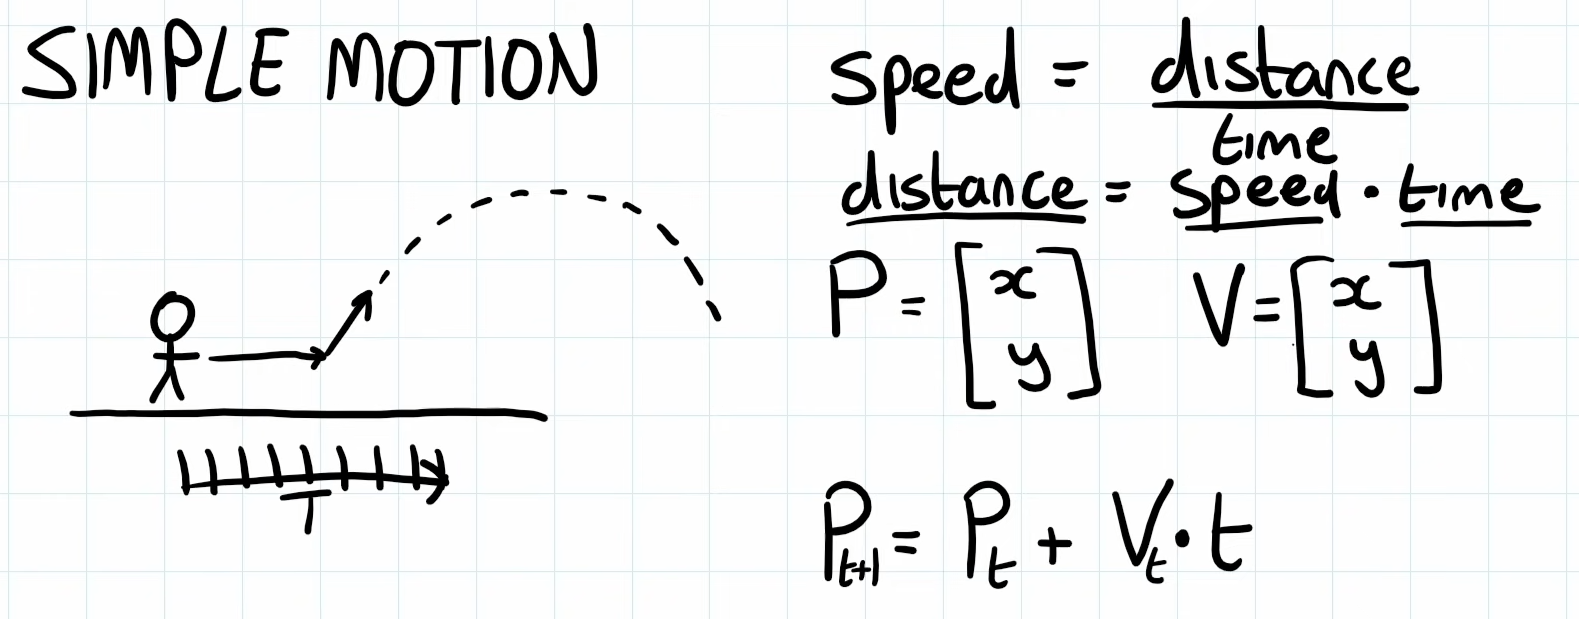 SIMPLE MOTION
T
speed = distance / time
distance = speed · time
P = [x y] V = [x y]
Pt+1 = Pt + Vt · t